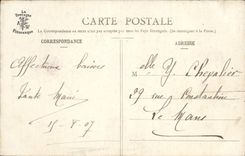 LA TOURAINE
CARTE POSTALE
La Correspondance au recto n'est pas acceptée par tous les Pays Étrangers. (Se renseigner à la Poste).
CORRESPONDANCE
ADRESSE
Affectueux baisers
Tante Marie
15-8-07
Melle Y. Chevalier
29 rue Constantine
Le Mans